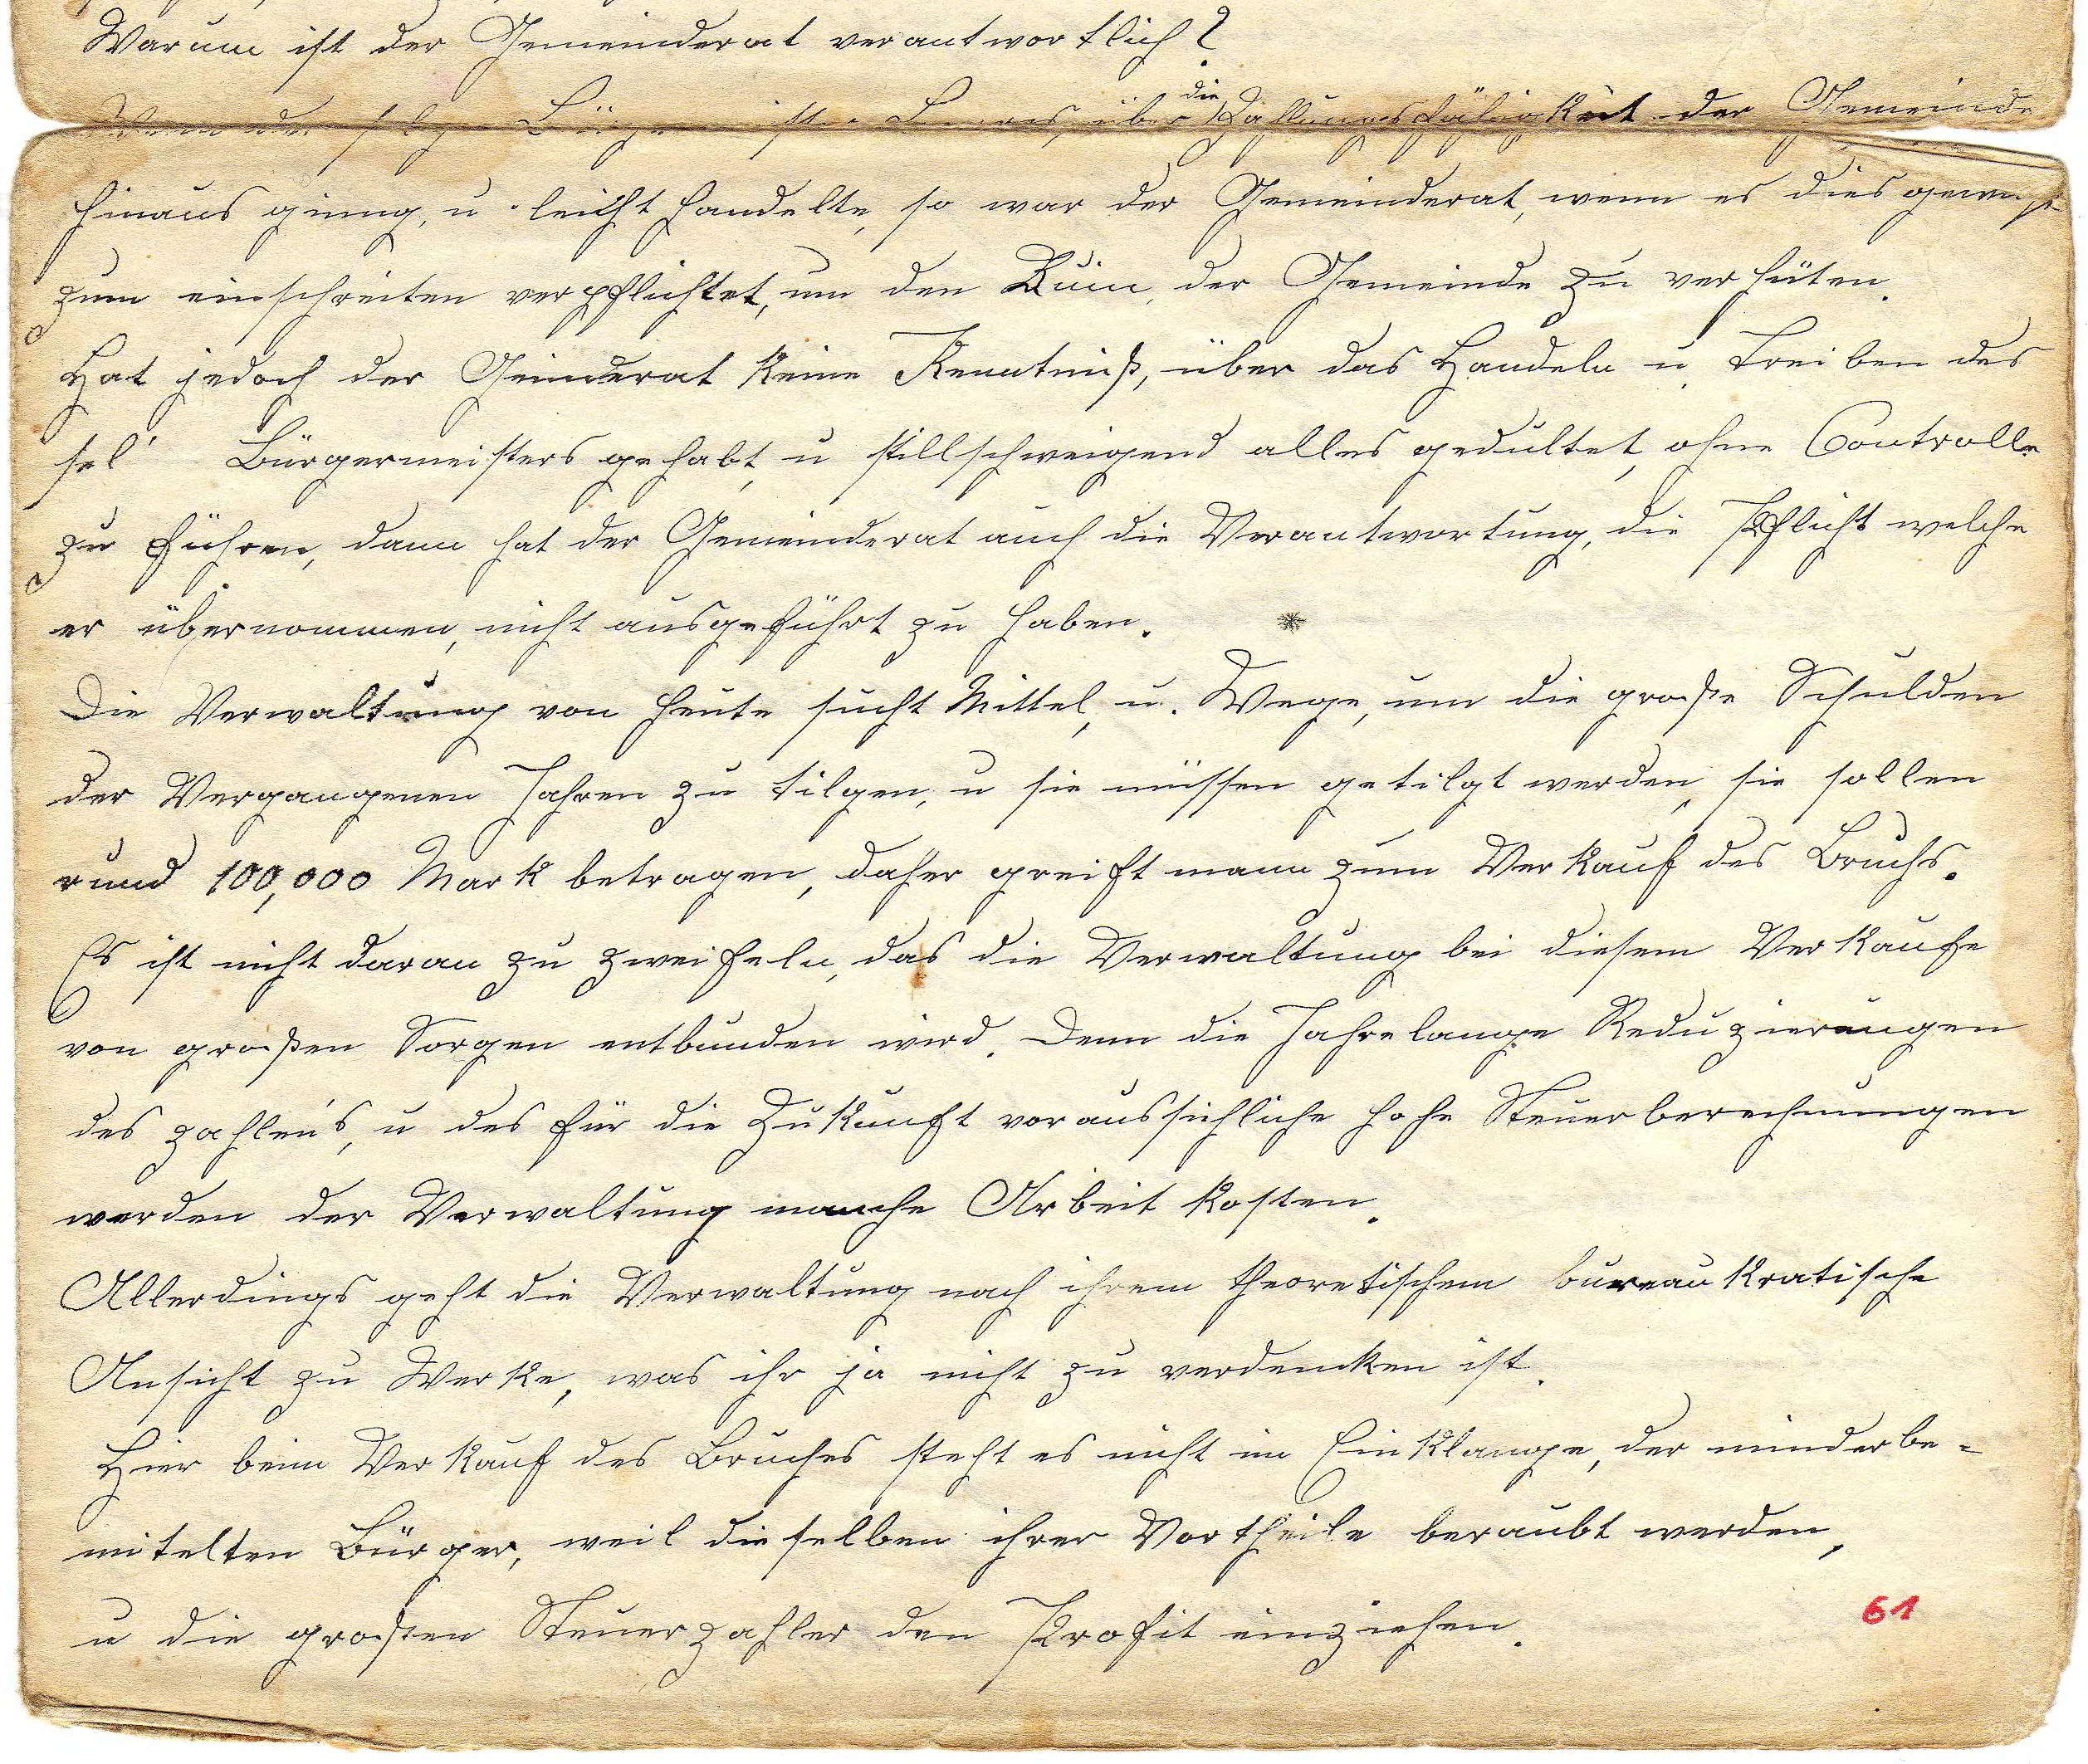 Warum ist der Gemeinderat verantwortlich?
Wenn der selge Bürgermeister über die Zahlungsfähigkeit der Gemeinde
hinaus ginng, u leicht handelte, so war der Gemeinderat, wenn es dies gewußt
zum einschreiten verpflichtet, um den Ruin, der Gemeinde zu verhüten.
Hat jedoch der Geinderat keine Kenntniß, über das Handeln u Treiben des
sel' Bürgermeisters gehabt, u stillschweigend alles gedultet, ohne Controlle
zu führen, dann hat der Gemeinderat auch die Verantwortung, die Pflicht welche
er übernommen, nicht ausgeführt zu haben. *
Die Verwaltung von heute sucht Mittel, u. Wege, um die große Schulden
der Vergangenen Jahren zu tilgen, u sie müssen getilgt werden, sie sollen
rund 100,000 Mark betragen, daher greift mann zum Verkauf des Bruchs.
Es ist nicht daran zu zweifeln, das die Verwaltung bei diesem Verkaufe
von großen Sorgen entbunden wird. Denn die Jahrelange Reduzierungen
des zahlen's, u des für die Zukunft voraussichliche hohe Steuerberechnungen
werden der Verwaltung manche Arbeit kosten.
Allerdings geht die Verwaltung nach ihrem theoretischem bureaukratische
Ansicht zu Werke, was ihr ja nicht zu verdencken ist.
Hier beim Verkauf des Bruches steht es nicht im Einklange, der minderbe-
mitelten Bürger, weil dieselben ihrer Vortheile beraubt werden,
u die großen Steuerzahler den Profit einziehen.
61